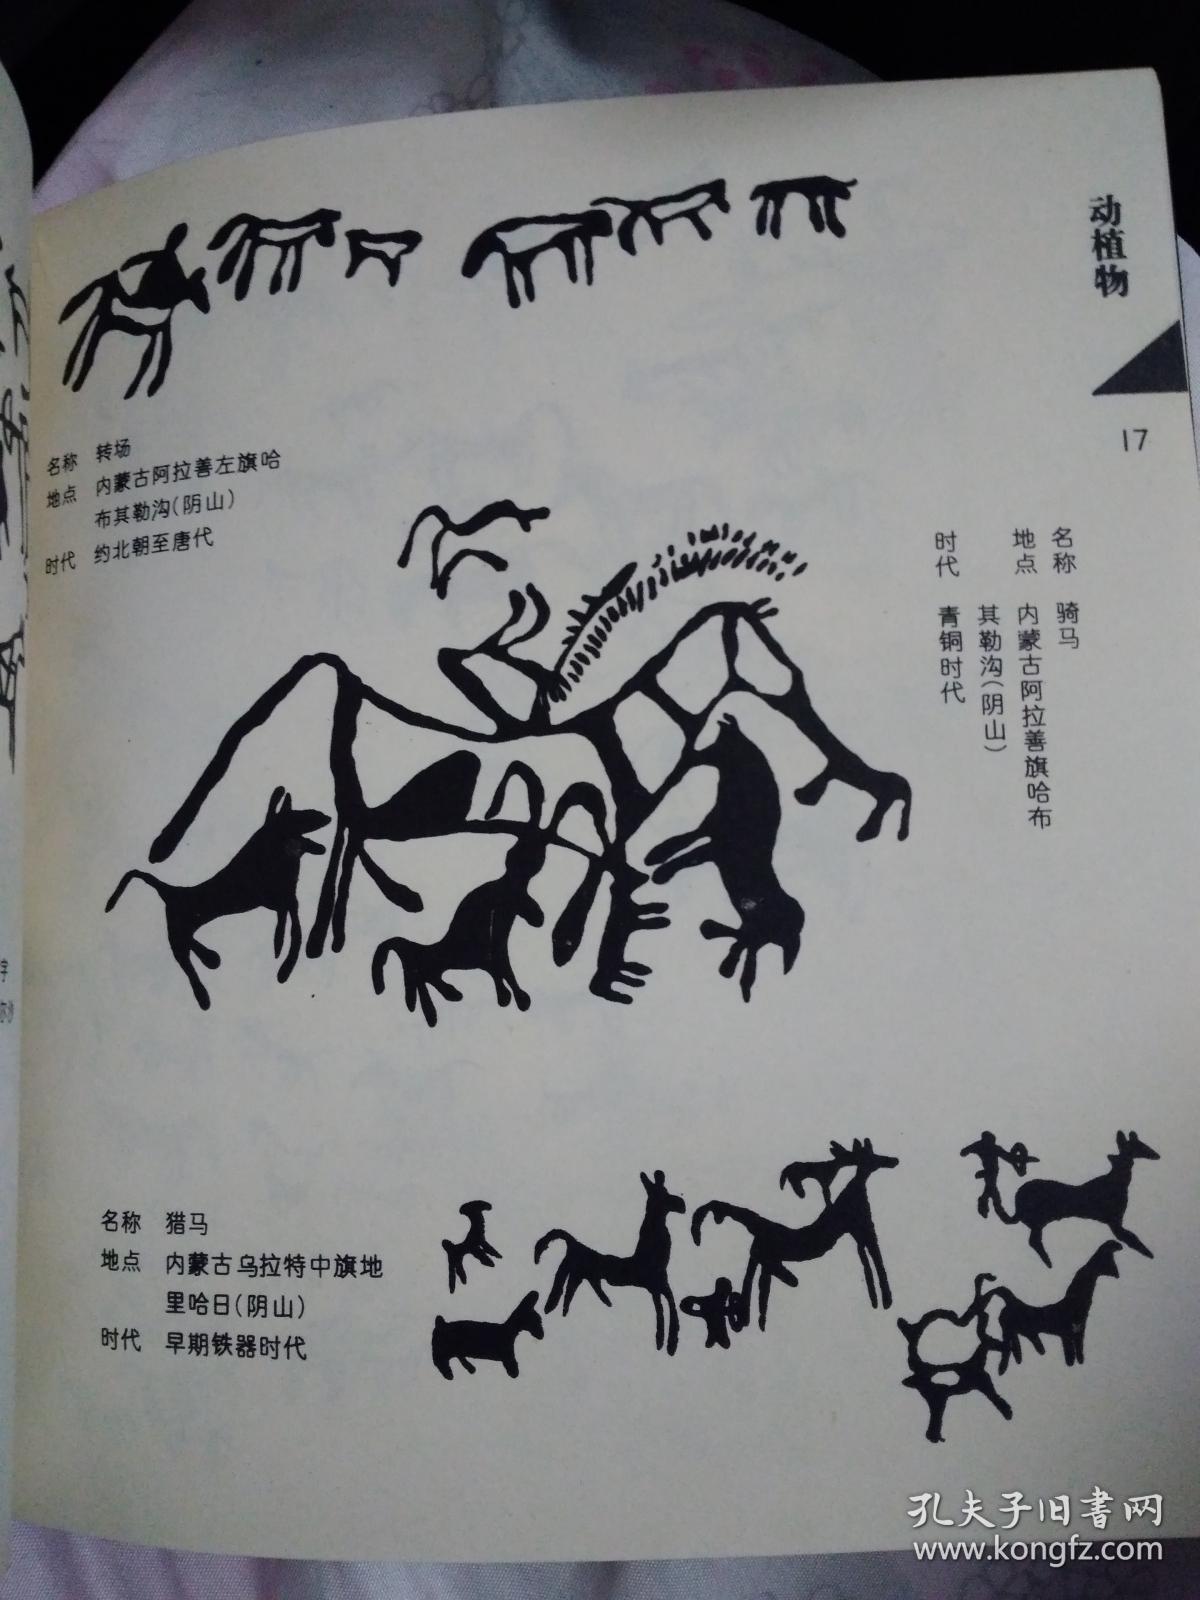 动植物
17
名称 转场
地点 内蒙古阿拉善左旗哈
布其勒沟(阴山)
时代 约北朝至唐代
名称 骑马
地点 内蒙古阿拉善旗哈布
其勒沟(阴山)
时代 青铜时代
名称 猎马
地点 内蒙古乌拉特中旗地
里哈日(阴山)
时代 早期铁器时代
字
孔夫子旧书网
www.kongfz.com